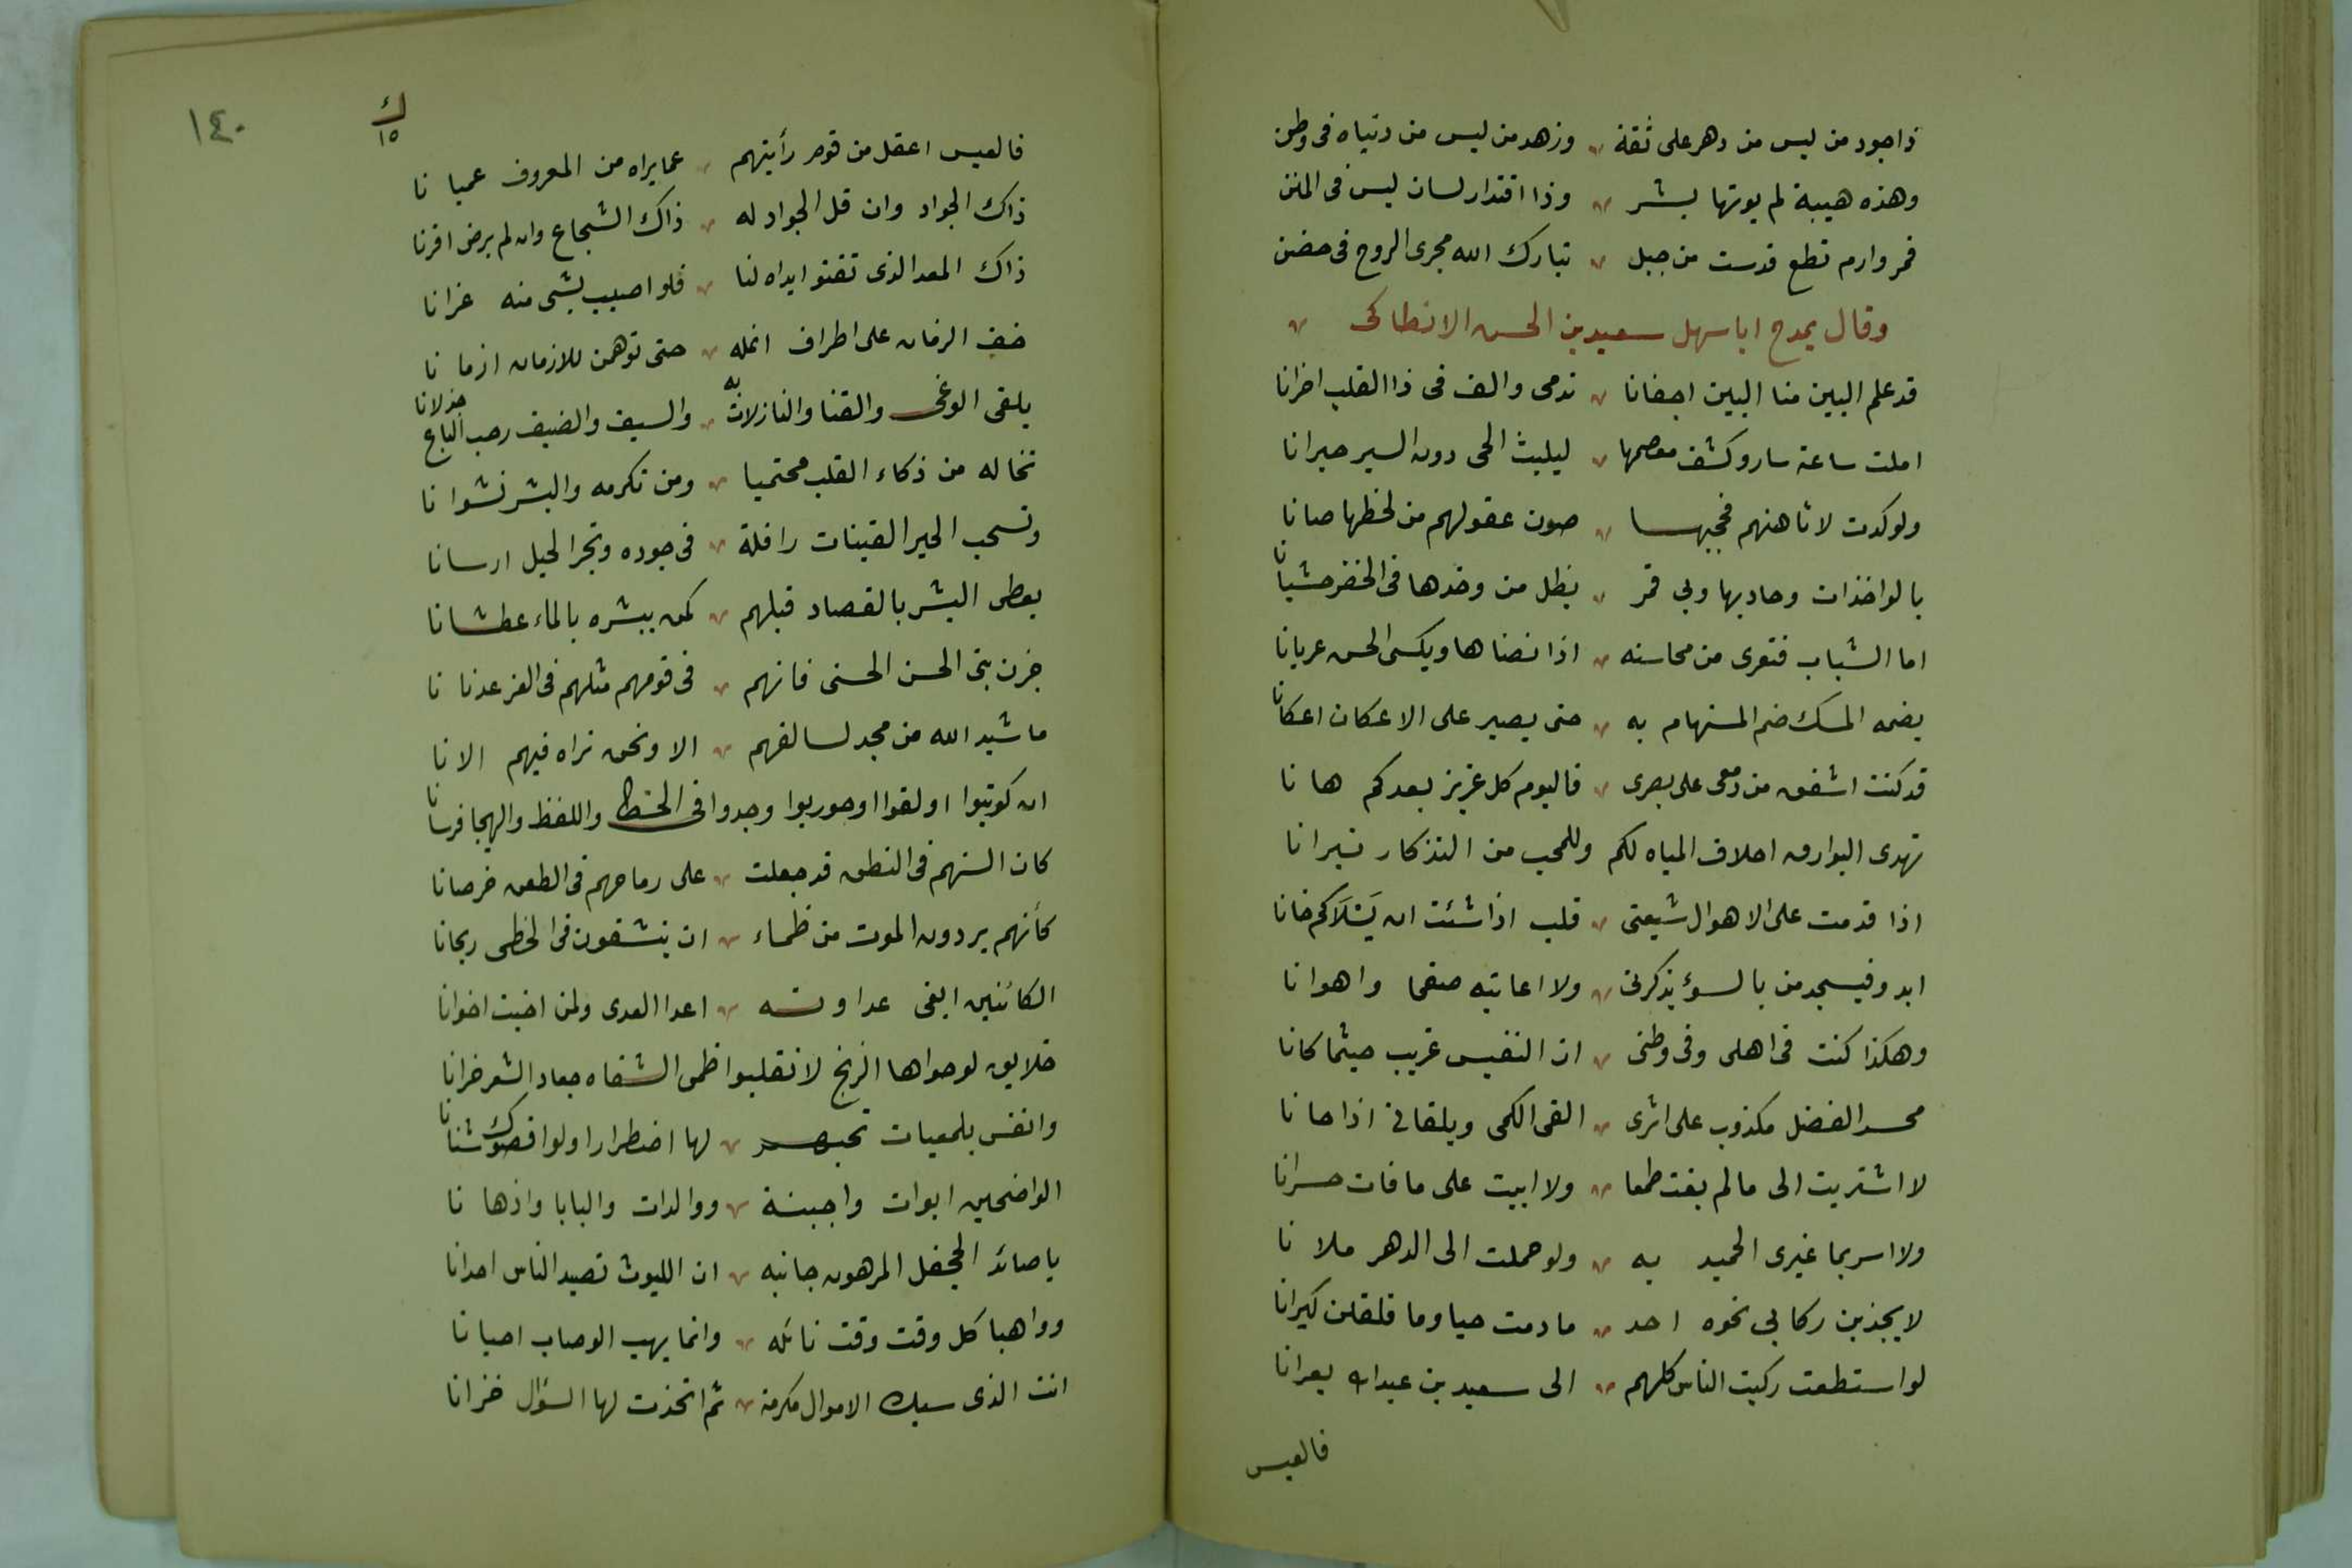 ذا جود من ليس من دهر على ثقة وزهد من ليس من دنياه فى وطن
وهذه هيبة لم يوتها بشر وذا اقتدار لسان ليس فى المنن
فمر وارم تطع قدست من جبل تبارك الله مجرى الروح فى حضن
وقال يمدح ابا سهل سعيد بن الحسن الانطاكى
قد علم البين منا البين اجفانا تدمى والف فى ذا القلب احزانا
املت ساعة سار وكشف معصمها ليلبث الحى دون السير حيرانا
ولو كدت لاتاهنهم فحجبها صون عقولهم من لحظها صانا
بالواخذات وحاديها وبى قمر يظل من وخدها فى الخدر حشيانا
اما الشباب فتعرى من محاسنه اذا نضاها ويكسى الحسن عريانا
يضمه المسك ضم المستهام به حتى يصير على الاعكان اعكانا
قد كنت اشفق من دمعى على بصرى فاليوم كل عزيز بعدكم هانا
تهدى البوارق اخلاف المياه لكم وللمحب من التذكار نيرانا
اذا قدمت على الاهوال شيعتى قلب اذا شئت ان يسلاكم خانا
ابدو فيسجد من بالسوء يذكرنى ولا اعاتبه صفحا واهوانا
وهكذا كنت فى اهلى وفى وطنى ان النفيس غريب حيثما كانا
محسد الفضل مكذوب على اثرى القى الكمى ويلقانى اذا حانا
لا اشتريت الى ما لم يفت طمعا ولا ابيت على ما فات حسرانا
ولا اسر بما غيرى الحميد به ولو حملت الى الدهر ملانا
لا يجذبن ركابى نحوه احد ما دمت حيا وما قلقلن كيرانا
لو استطعت ركبت الناس كلهم الى سعيد بن عبدالله بعرانا
فالعيس
١٤٠
ك
١٥
فالعيس اعقل من قوم رأيتهم عما يراه من المعروف عميانا
ذاك الجواد وان قل الجواد له ذاك الشجاع وان لم يرض اقرنا
ذاك المعد الذى تقنو ايداه لنا فلو اصيب بشى منه عزانا
خف الزمان على اطراف انمله حتى توهمن للازمان ازمانا
يلقى الوغى والقنا والنازلات به والسيف والضيف رحب الباع جذلانا
تخاله من ذكاء القلب محتميا ومن تكرمه والبشر نشوانا
وتسحب الحبر القينات رافلة فى جوده وتجر الخيل ارسانا
يعطى البشر بالقصاد قبلهم كمن يبشره بالماء عطشانا
جزن بنى الحسن الحسنى فانهم فى قومهم مثلهم فى الغر عدنانا
ما شيد الله من مجد لسالفهم الا ونحن نراه فيهم الانا
ان كوتبوا او لقوا او حوربوا وجدوا فى الخط واللفظ والهيجا فرسانا
كان السنهم فى النطق قد جعلت على رماحهم فى الطعن خرصانا
كأنهم يردون الموت من ظماء ان ينشقون فى الخطى ريحانا
الكائنين ابقى عداوته اعدا العدى ولمن اخيت اخوانا
خلايق لو حواها الزنج لانقلبوا ظمى الشفاه جعاد الشعر غرانا
وانفس يلمعيات تحبهم لها اضطرارا ولو اقصوك شنانا
الواضحين ابوات واجبنة ووالدات والبابا واذهانا
يا صائد الجحفل المرهون جانبه ان الليوث تصيد الناس احدانا
وواهبا كل وقت وقت نائله وانما يهب الوهاب احيانا
انت الذى سبك الاموال مكرمة ثم اتخذت لها السؤال خزانا